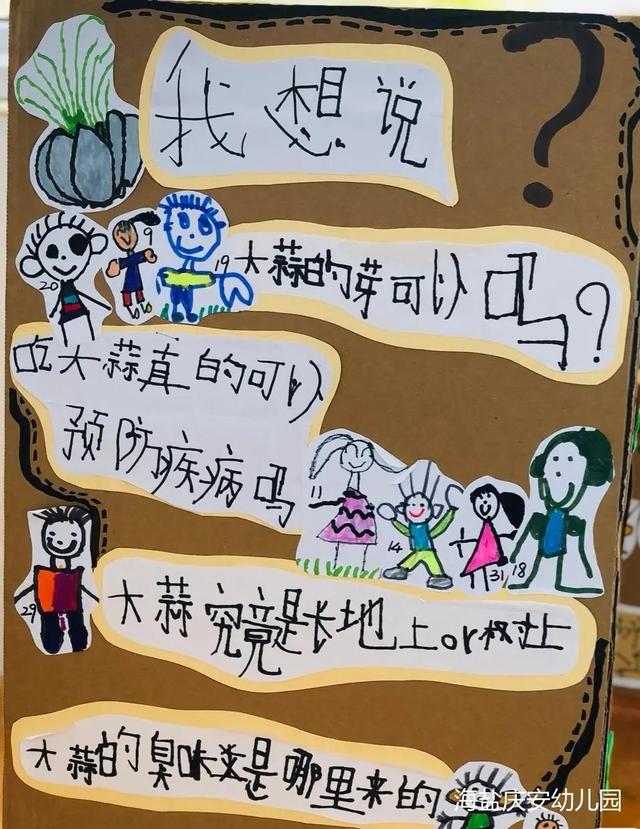 我想说
?
大蒜的芽可以吗?
20
9
19
吃大蒜真的可以
预防疾病吗
11
14
31
18
29
大蒜究竟是长地上or树上
大蒜的臭味是哪里来的
海盐庆安幼儿园